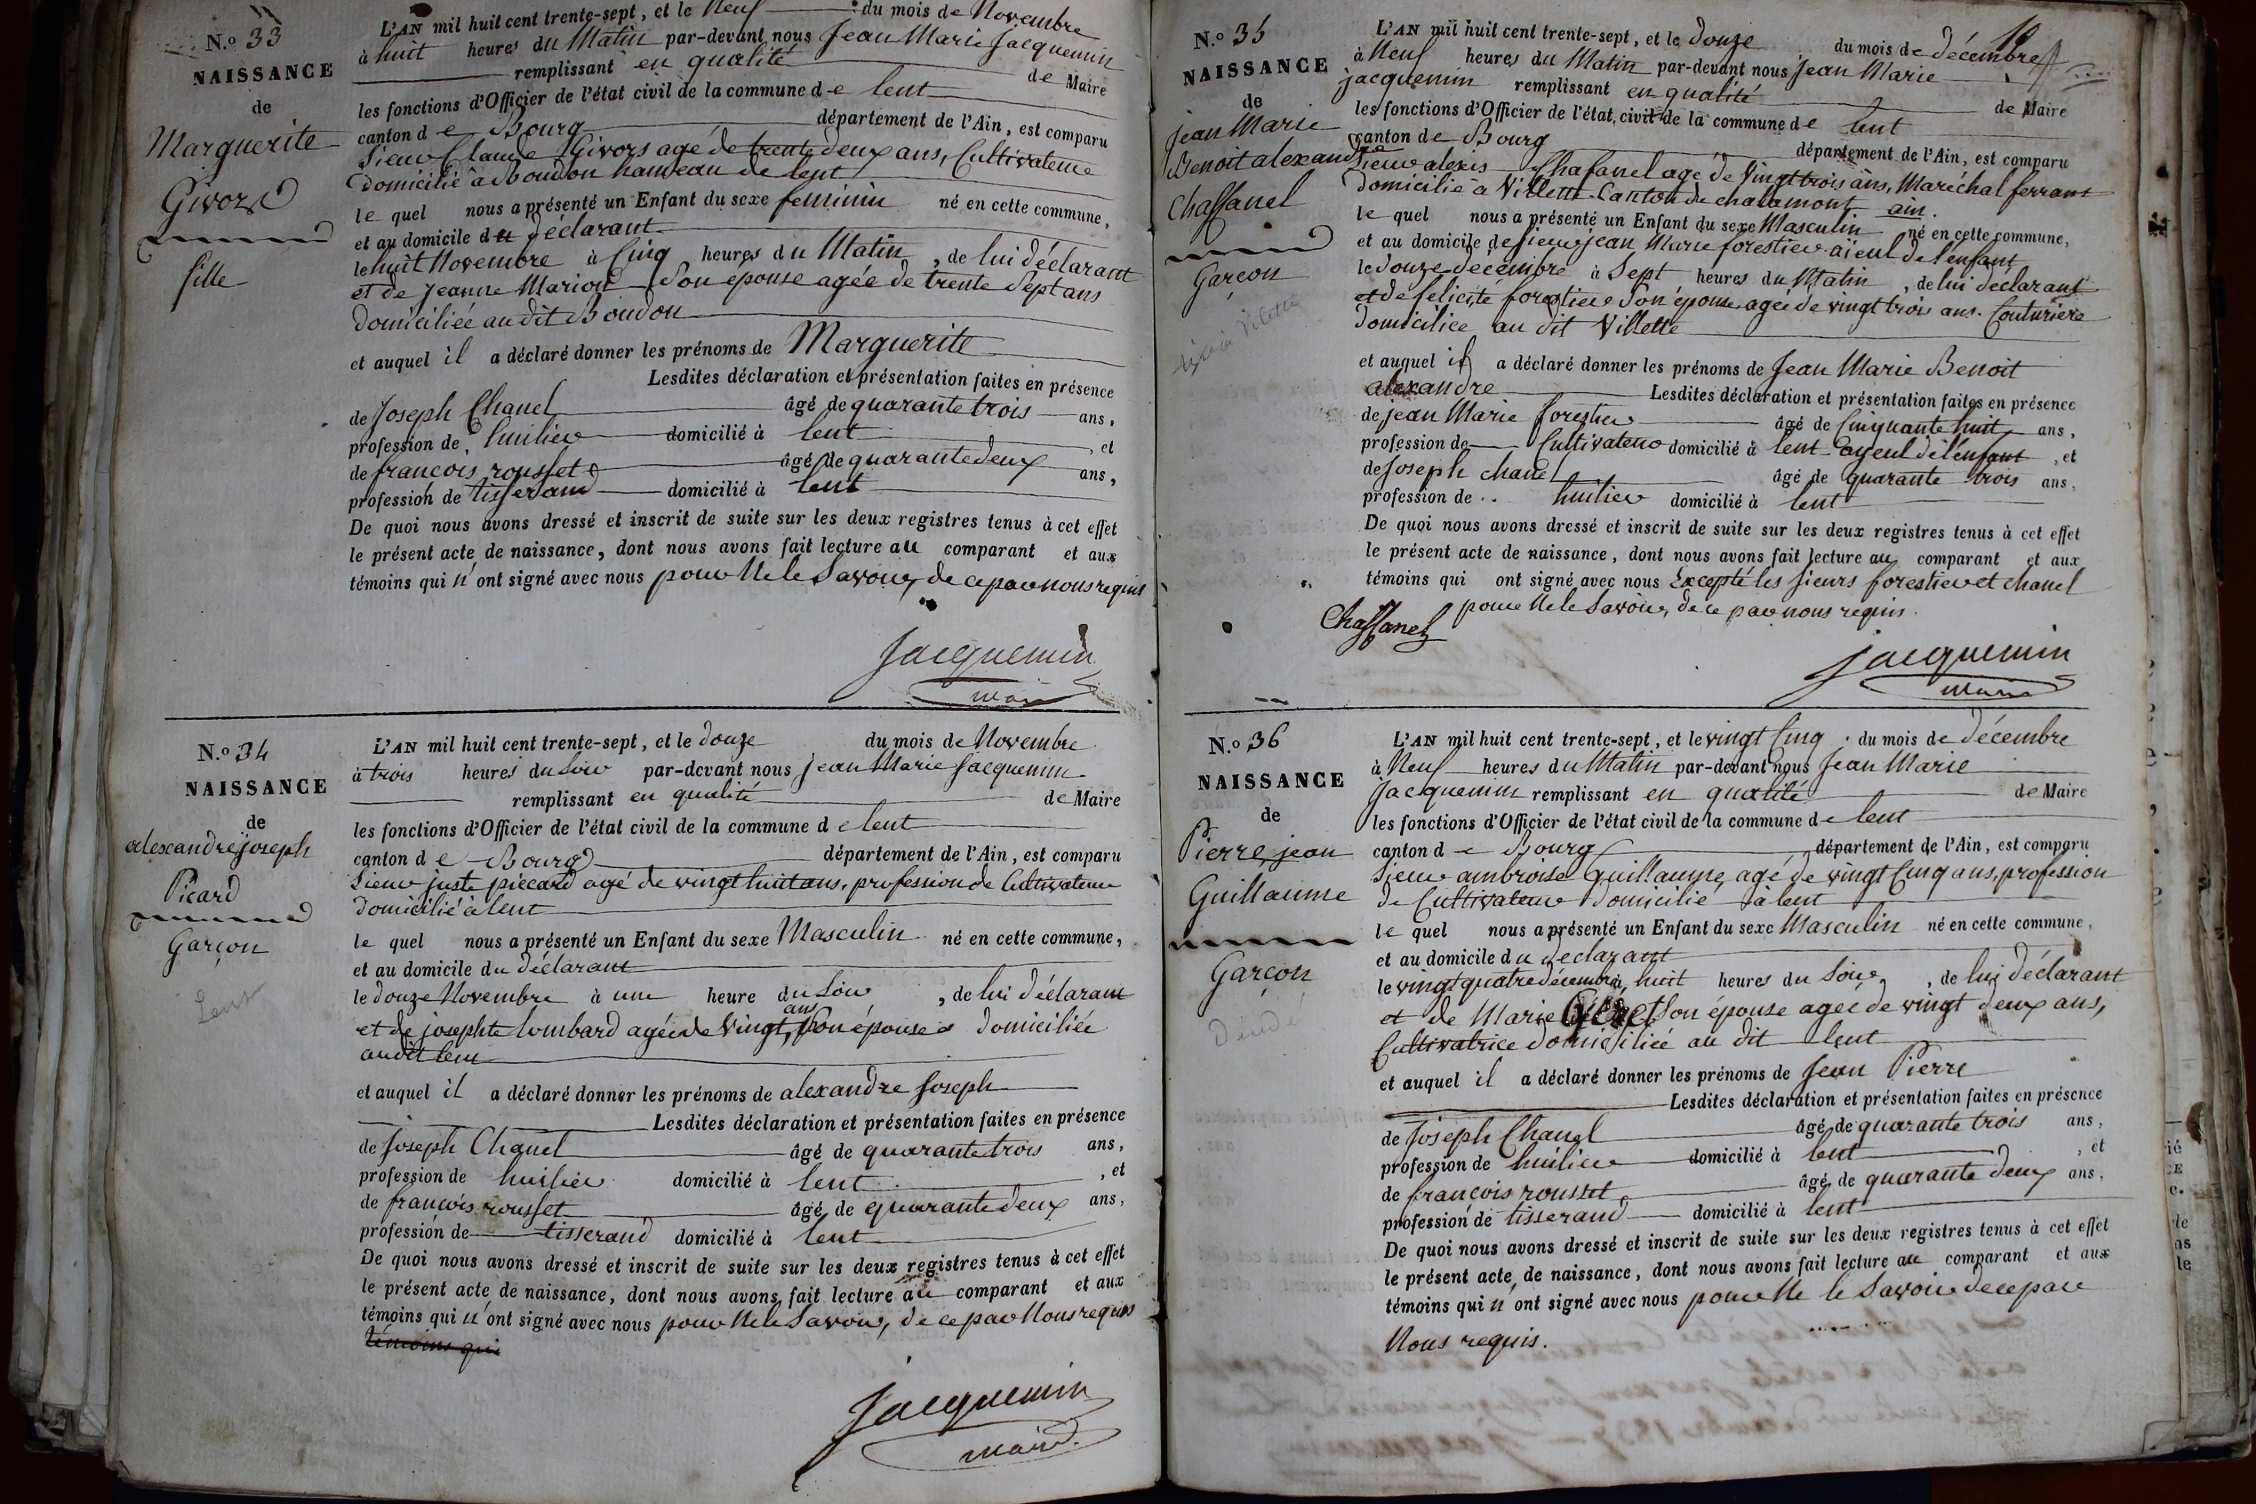 N.o 33
NAISSANCE
de
Marguerite
Givord
fille
L'AN mil huit cent trente-sept, et le Neuf du mois de Novembre
à huit heures du Matin par-devant nous Jean Marie Jacquemin
remplissant en qualité de Maire
les fonctions d'Officier de l'état civil de la commune de lent
canton de Bourg département de l'Ain, est comparu
Sieur Claude Givors agé de trente deux ans, Cultivateur
domicilié à Boudon hameau de lent
le quel nous a présenté un Enfant du sexe feminin né en cette commune,
et au domicile du déclarant
le huit Novembre à Cinq heures du Matin, de lui déclarant
et de jeanne Marion Son épouse agée de trente Sept ans
domiciliée au dit Boudon
et auquel il a déclaré donner les prénoms de Marguerite
Lesdites déclaration et présentation faites en présence
de Joseph Chanel âgé de quarante trois ans,
profession de huilier domicilié à lent et
de francois rousset âgé de quarante deux ans,
profession de tisserand domicilié à lent
De quoi nous avons dressé et inscrit de suite sur les deux registres tenus à cet effet
le présent acte de naissance, dont nous avons fait lecture au comparant et aux
témoins qui n'ont signé avec nous pour Ne le Savoir, de ce par nous requis
Jacquemin
maire
N.o 34
NAISSANCE
de
alexandre joseph
Picard
Garçon
Lent
L'AN mil huit cent trente-sept, et le douze du mois de Novembre
à trois heures du Soir par-devant nous jean Marie Jacquemin
remplissant en qualité de Maire
les fonctions d'Officier de l'état civil de la commune de lent
canton de Bourg département de l'Ain, est comparu
Sieur juste piccard agé de vingt huit ans, profession de Cultivateur
domicilié à lent
le quel nous a présenté un Enfant du sexe Masculin né en cette commune,
et au domicile du déclarant
le douze Novembre à une heure du Soir, de lui déclarant
et de josephte lombard agée de Vingt ans, Son épouse domiciliée
au dit lent
et auquel il a déclaré donner les prénoms de alexandre Joseph
Lesdites déclaration et présentation faites en présence
de Joseph Chanel âgé de quarante trois ans,
profession de huilier domicilié à lent, et
de francois rousset âgé de quarante deux ans,
profession de tisserand domicilié à lent
De quoi nous avons dressé et inscrit de suite sur les deux registres tenus à cet effet
le présent acte de naissance, dont nous avons fait lecture au comparant et aux
témoins qui n'ont signé avec nous pour Ne le Savoir, de ce par Nous requis
témoins qui
Jacquemin
maire
N.o 35
NAISSANCE
de
jean Marie
Benoit alexandre
Chaffanel
Garçon
L'AN mil huit cent trente-sept, et le douze du mois de décembre
à Neuf heures du Matin par-devant nous Jean Marie
jacquemin remplissant en qualité de Maire
les fonctions d'Officier de l'état civil de la commune de lent
canton de Bourg département de l'Ain, est comparu
Sieur alexis Chafanel agé de Vingt trois ans, Maréchal ferrant
domicilié à Villette Canton de chalamont ain.
le quel nous a présenté un Enfant du sexe Masculin né en cette commune,
et au domicile de Sieur jean Marie forestier aïeul de l'enfant
le douze décembre à Sept heures du Matin, de lui déclarant
et de felicité forestier Son épouse agée de vingt trois ans. Couturiere
domiciliée au dit Villette
et auquel il a déclaré donner les prénoms de Jean Marie Benoit
alexandre Lesdites déclaration et présentation faites en présence
de jean Marie forestier âgé de Cinquante huit ans,
profession de Cultivateur domicilié à lent ayeul de l'enfant, et
de Joseph chanel âgé de quarante trois ans,
profession de huilier domicilié à lent
De quoi nous avons dressé et inscrit de suite sur les deux registres tenus à cet effet
le présent acte de naissance, dont nous avons fait lecture au comparant et aux
témoins qui ont signé avec nous Excepté les Sieurs forestier et chanel
pour Ne le Savoir, de ce par nous requis.
Chaffanel
Jacquemin
maire
N.o 36
NAISSANCE
de
Pierre jean
Guillaume
Garçon
L'AN mil huit cent trente-sept, et le vingt Cinq du mois de décembre
à Neuf heures du Matin par-devant nous Jean Marie
Jacquemin remplissant en qualité de Maire
les fonctions d'Officier de l'état civil de la commune de lent
canton de Bourg département de l'Ain, est comparu
Sieur ambroise Guillaume, agé de vingt Cinq ans, profession
de Cultivateur domicilié à lent
le quel nous a présenté un Enfant du sexe Masculin né en cette commune,
et au domicile du déclarant
le vingt quatre décembre à huit heures du Soir, de lui déclarant
et de Marie Son épouse agée de vingt deux ans,
Cultivatrice domiciliée au dit lent
et auquel il a déclaré donner les prénoms de Jean Pierre
Lesdites déclaration et présentation faites en présence
de Joseph Chanel âgé de quarante trois ans,
profession de huilier domicilié à lent, et
de françois rousset âgé de quarante deux ans,
profession de tisserand domicilié à lent
De quoi nous avons dressé et inscrit de suite sur les deux registres tenus à cet effet
le présent acte de naissance, dont nous avons fait lecture au comparant et aux
témoins qui n'ont signé avec nous pour Ne le Savoir de ce par
Nous requis.